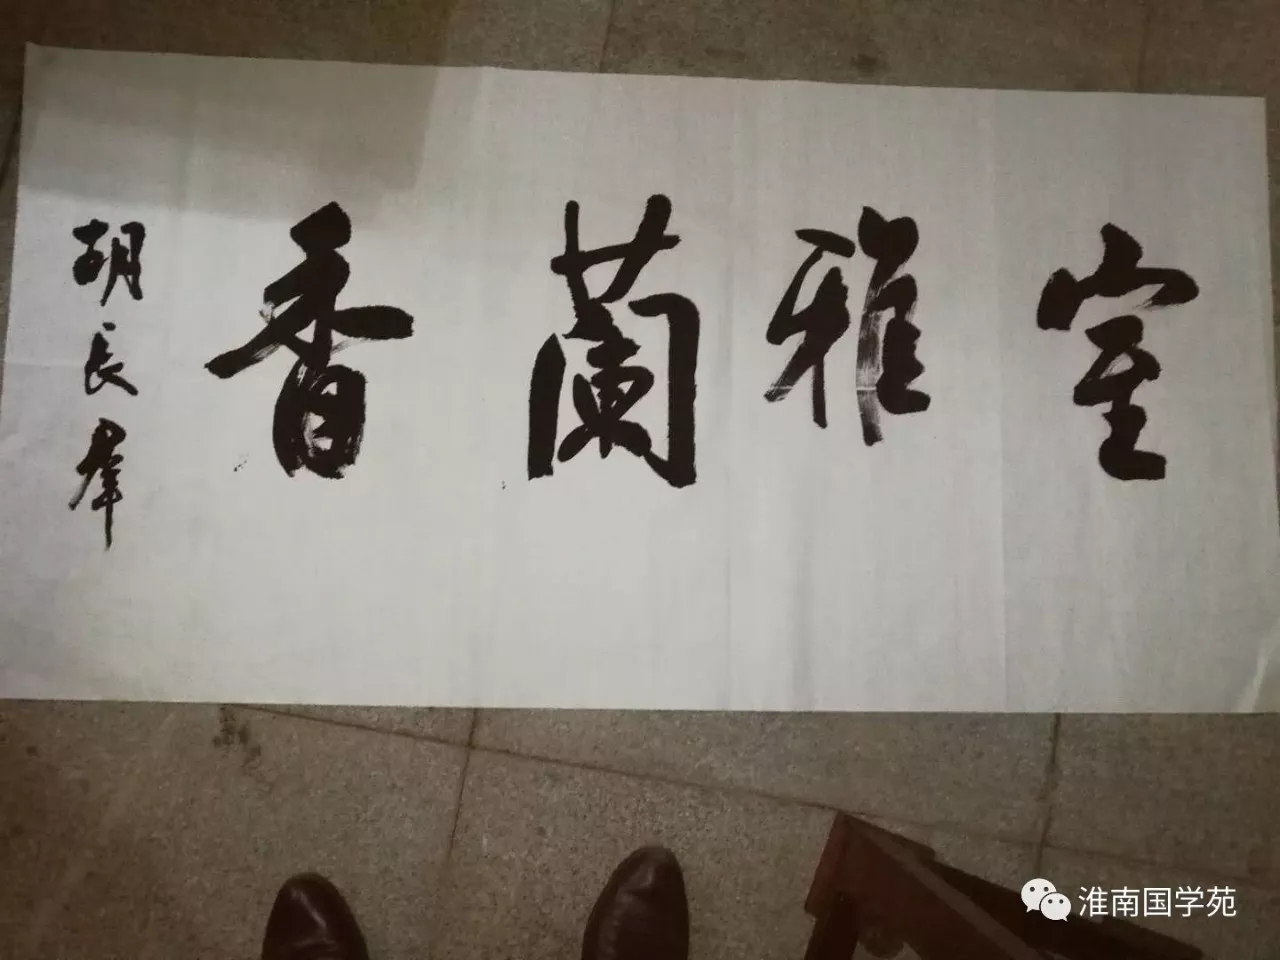 室雅蘭香
胡长羣
淮南国学苑